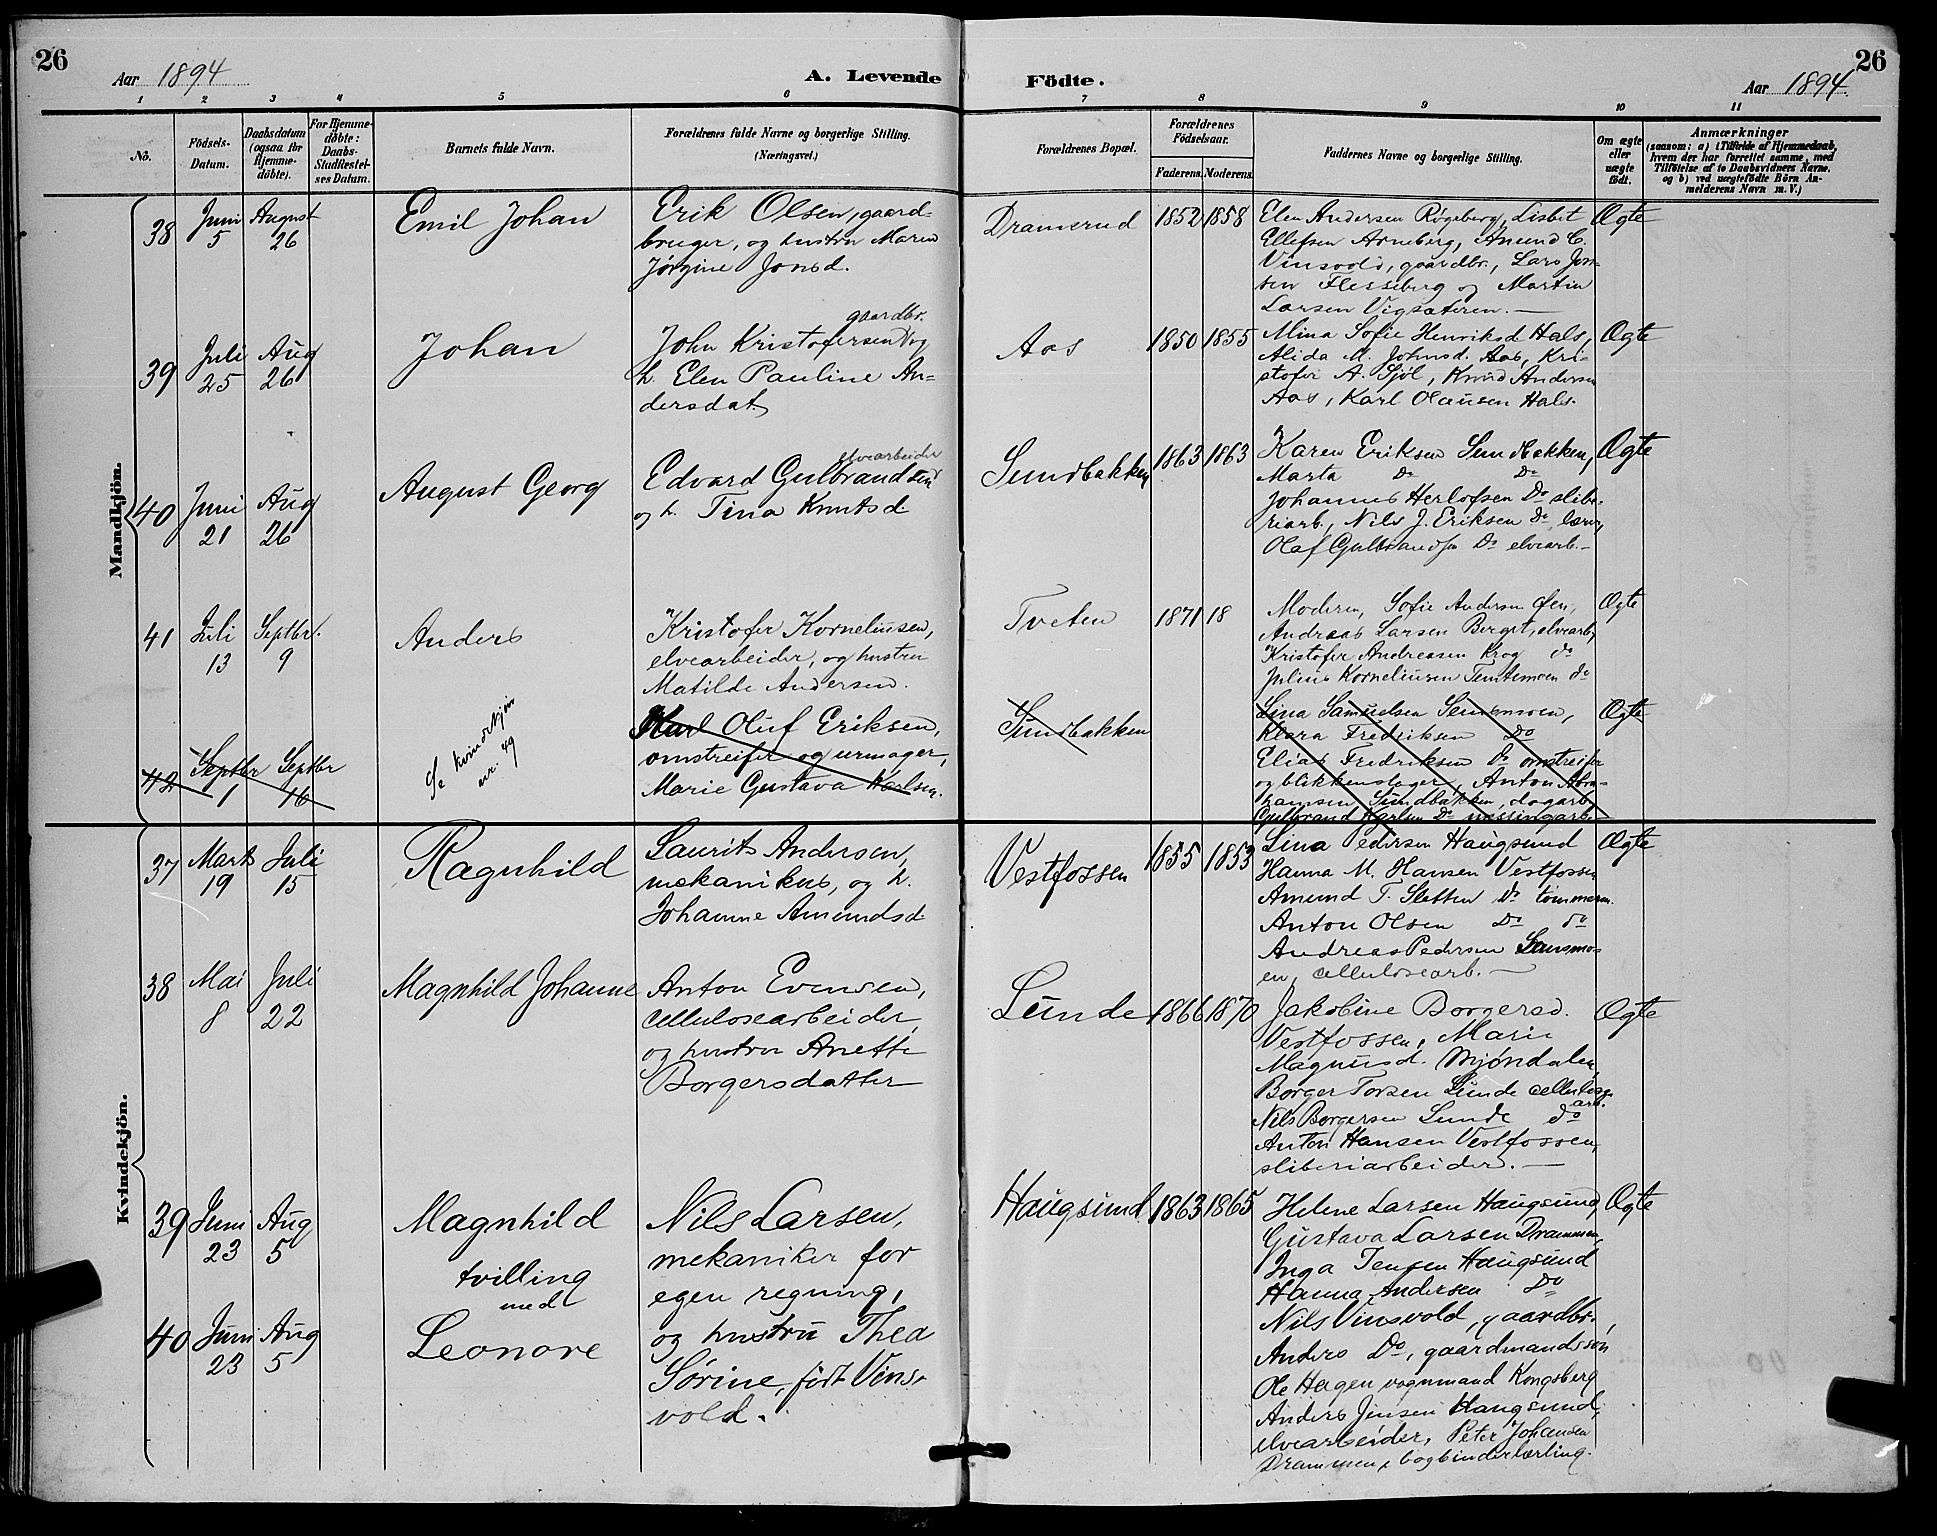 26
Aar 1894.
A. Levende
Födte.
Aar 1894.
26
1 2 3 4 5 6 7 8 9 10 11
No.
Födsels-
Datum.
Daabsdatum
(ogsaa for
Hjemme-
döbte).
For Hjemme-
döbte:
Daabs-
Stadfæstel-
ses Datum.
Barnets fulde Navn.
Forældrenes fulde Navne og borgerlige Stilling.
(Næringsvei.)
Forældrenes Bopæl.
Forældrenes
Födselsaar.
Faderens. Moderens.
Faddernes Navne og borgerlige Stilling.
Om ægte
eller
uægte
födt.
Anmærkninger
(saasom: a) i Tilfælde af Hjemmedaab,
hvem der har forrettet samme, med
Tilföielse af to Daabsvidners Navne,
og b) ved uægtefödte Börn An-
melderens Navn m. V.)
Mandkjön.
38
Juni
5
August
26
Emil Johan
Erik Olsen, gaard-
bruger, og hustru Maren
Jörgine Jonsd.
Dramsrud
1852 1858
Elen Andersen Rögeberg, Lisbet
Ellefsen Arneberg, Anund C.
Vinsvold, gaardbr., Lars Jen-
sen Flesseberg og Martin
Larsen Vigsæteren. —
Ægte
39
Juli
25
Aug
26
Johan
gaardbr.
John Kristofersen og
h. Elen Pauline An-
dersdat.
Aas
1850 1855
Mina Sofie Henriksd Hals,
Alida M. Johnsd. Aas, Kri-
stofer A. Sjöl, Knud Andersen
Aas, Karl Olausen Hals.
Ægte
40
Juni
21
Aug
26
August Georg
elvearbeider
Edvard Gulbrandsen
og h. Tina Knutsd.
Sundbakken
1863 1863
Karen Eriksen Sundbakken,
Marta Do Do
Johannes Herlofsen Do slibe-
riarb., Nils J. Eriksen Do
Olaf Gulbrandsen Do elvearb. —
Ægte
41
Juli
13
Septbr.
9
Anders
Kristofer Korneliusen,
elvearbeider, og hustru
Matilde Andersen.
Tveten
1871 18
Moderen, Sofie Andersen Øen,
Andreas Larsen Berget, elvearb,
Kristofer Andreasen Krog do
Julius Korneliusen Temtemoen do
Ægte
42
Septbr
1
Septbr
16
Se kvindekjön
nr. 49
Karl Oluf Eriksen,
omstreifer og urmager,
Marie Gustava Karlsen.
Sundbakken
Lina Samuelsen Semensoen,
Klara Fredriksen Do
Elias Fredriksen Do omstreifer
og blikkenslager, Anton Abra-
hamsen Sundbakken, dagarb,
Gulbrand Karlsen Do messingarb.
Ægte
Kvindekjön.
37
Marts
19
Juli
15
Ragnhild
Laurits Andersen,
mekanikus, og h.
Johanne Amundsd.
Vestfossen
1855 1853
Lina Pedersen Haugsund
Hanna M. Hansen Vestfossen
Amund T. Sletten Do tömmerm.
Anton Olsen Do do
Andreas Pedersen Sansmo-
en, cellulosearb. —
Ægte
38
Mai
8
Juli
22
Magnhild Johanne
Anton Evensen,
cellulosearbeider,
og hustru Anette
Borgersdatter
Lunde
1866 1870
Jakobine Borgersd.
Vestfossen, Marie
Magnusd. Mjöndalen,
Borger Torsen Lunde cellulose
arb.
Nils Borgersen Lunde do
Anton Hansen Vestfossen,
sliberiarbeider. —
Ægte
39
Juni
23
Aug
5
Magnhild
tvilling
med
40
Juni
23
Aug
5
Leonore
Nils Larsen,
mekaniker for
egen regning,
og hustru Thea
Sörine, född Vins-
vold.
Haugsund
1863 1865
Helene Larsen Haugsund,
Gustava Larsen Drammen,
Inga Jensen Haugsund
Hanna Andersen Do
Nils Vinsvold, gaardbr.,
Anders Do, gaardmandssön
Ole Hagen vognmand Kongsberg
Anders Jensen Haugsund,
elvearbeider, Peter Johansen
Drammen, bogbinderlærling.
Ægte